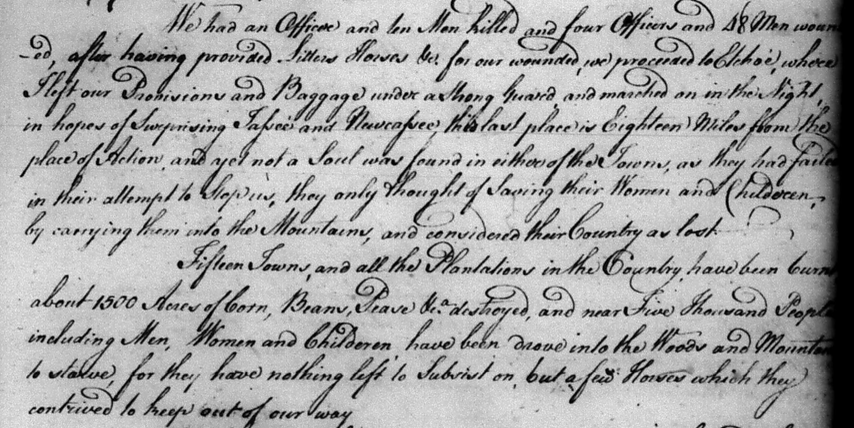 We had an Officer and ten Men killed and four Officers and 48 Men wound
-ed, after having provided Litters Horses &c. for our wounded, we proceeded to Etchoe, where
I left our Provisions and Baggage under a strong Guard, and marched on in the Night,
in hopes of Surprising Tasseé and Neucassee this last place is Eighteen Miles from the
place of Action, and yet not a Soul was found in either of the Towns, as they had failed
in their attempt to Stop us, they only thought of Saving their Women and Childeren,
by carrying them into the Mountains, and considered their Country as lost
Fifteen Towns, and all the Plantations in the Country, have been burnt
about 1500 Acres of Corn, Beans, Pease &ca. destroyed, and near Five Thousand People
including Men, Women and Childeren have been drove into the Woods and Mountains
to starve, for they have nothing left to Subsist on, but a few Horses which they
contrived to keep out of our way